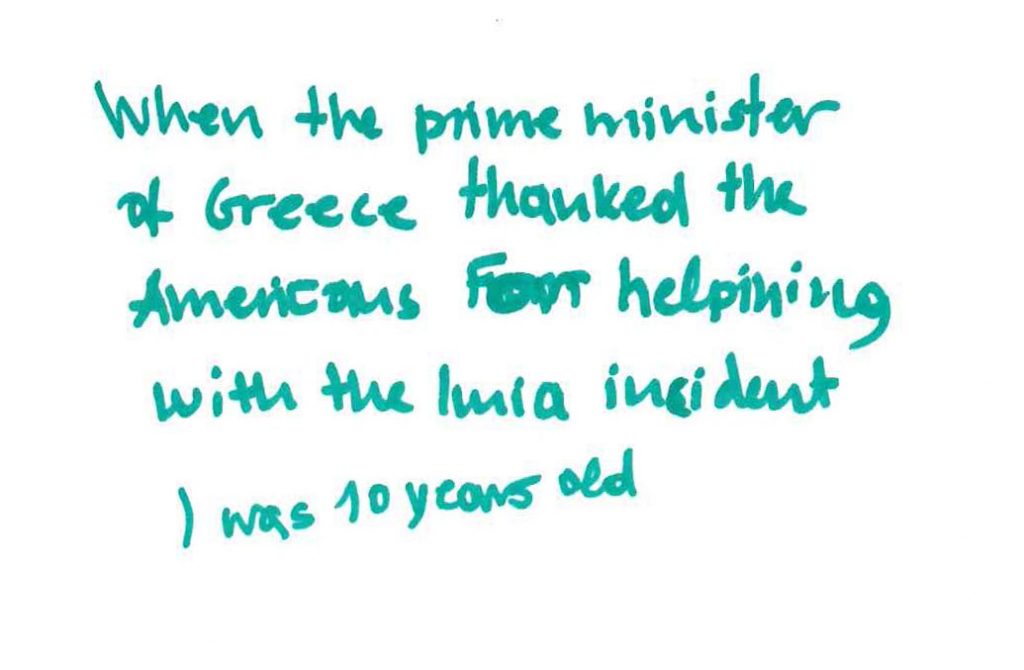 When the prime minister
of Greece thanked the
Americans For helpining
with the Imia incident
I was 10 years old